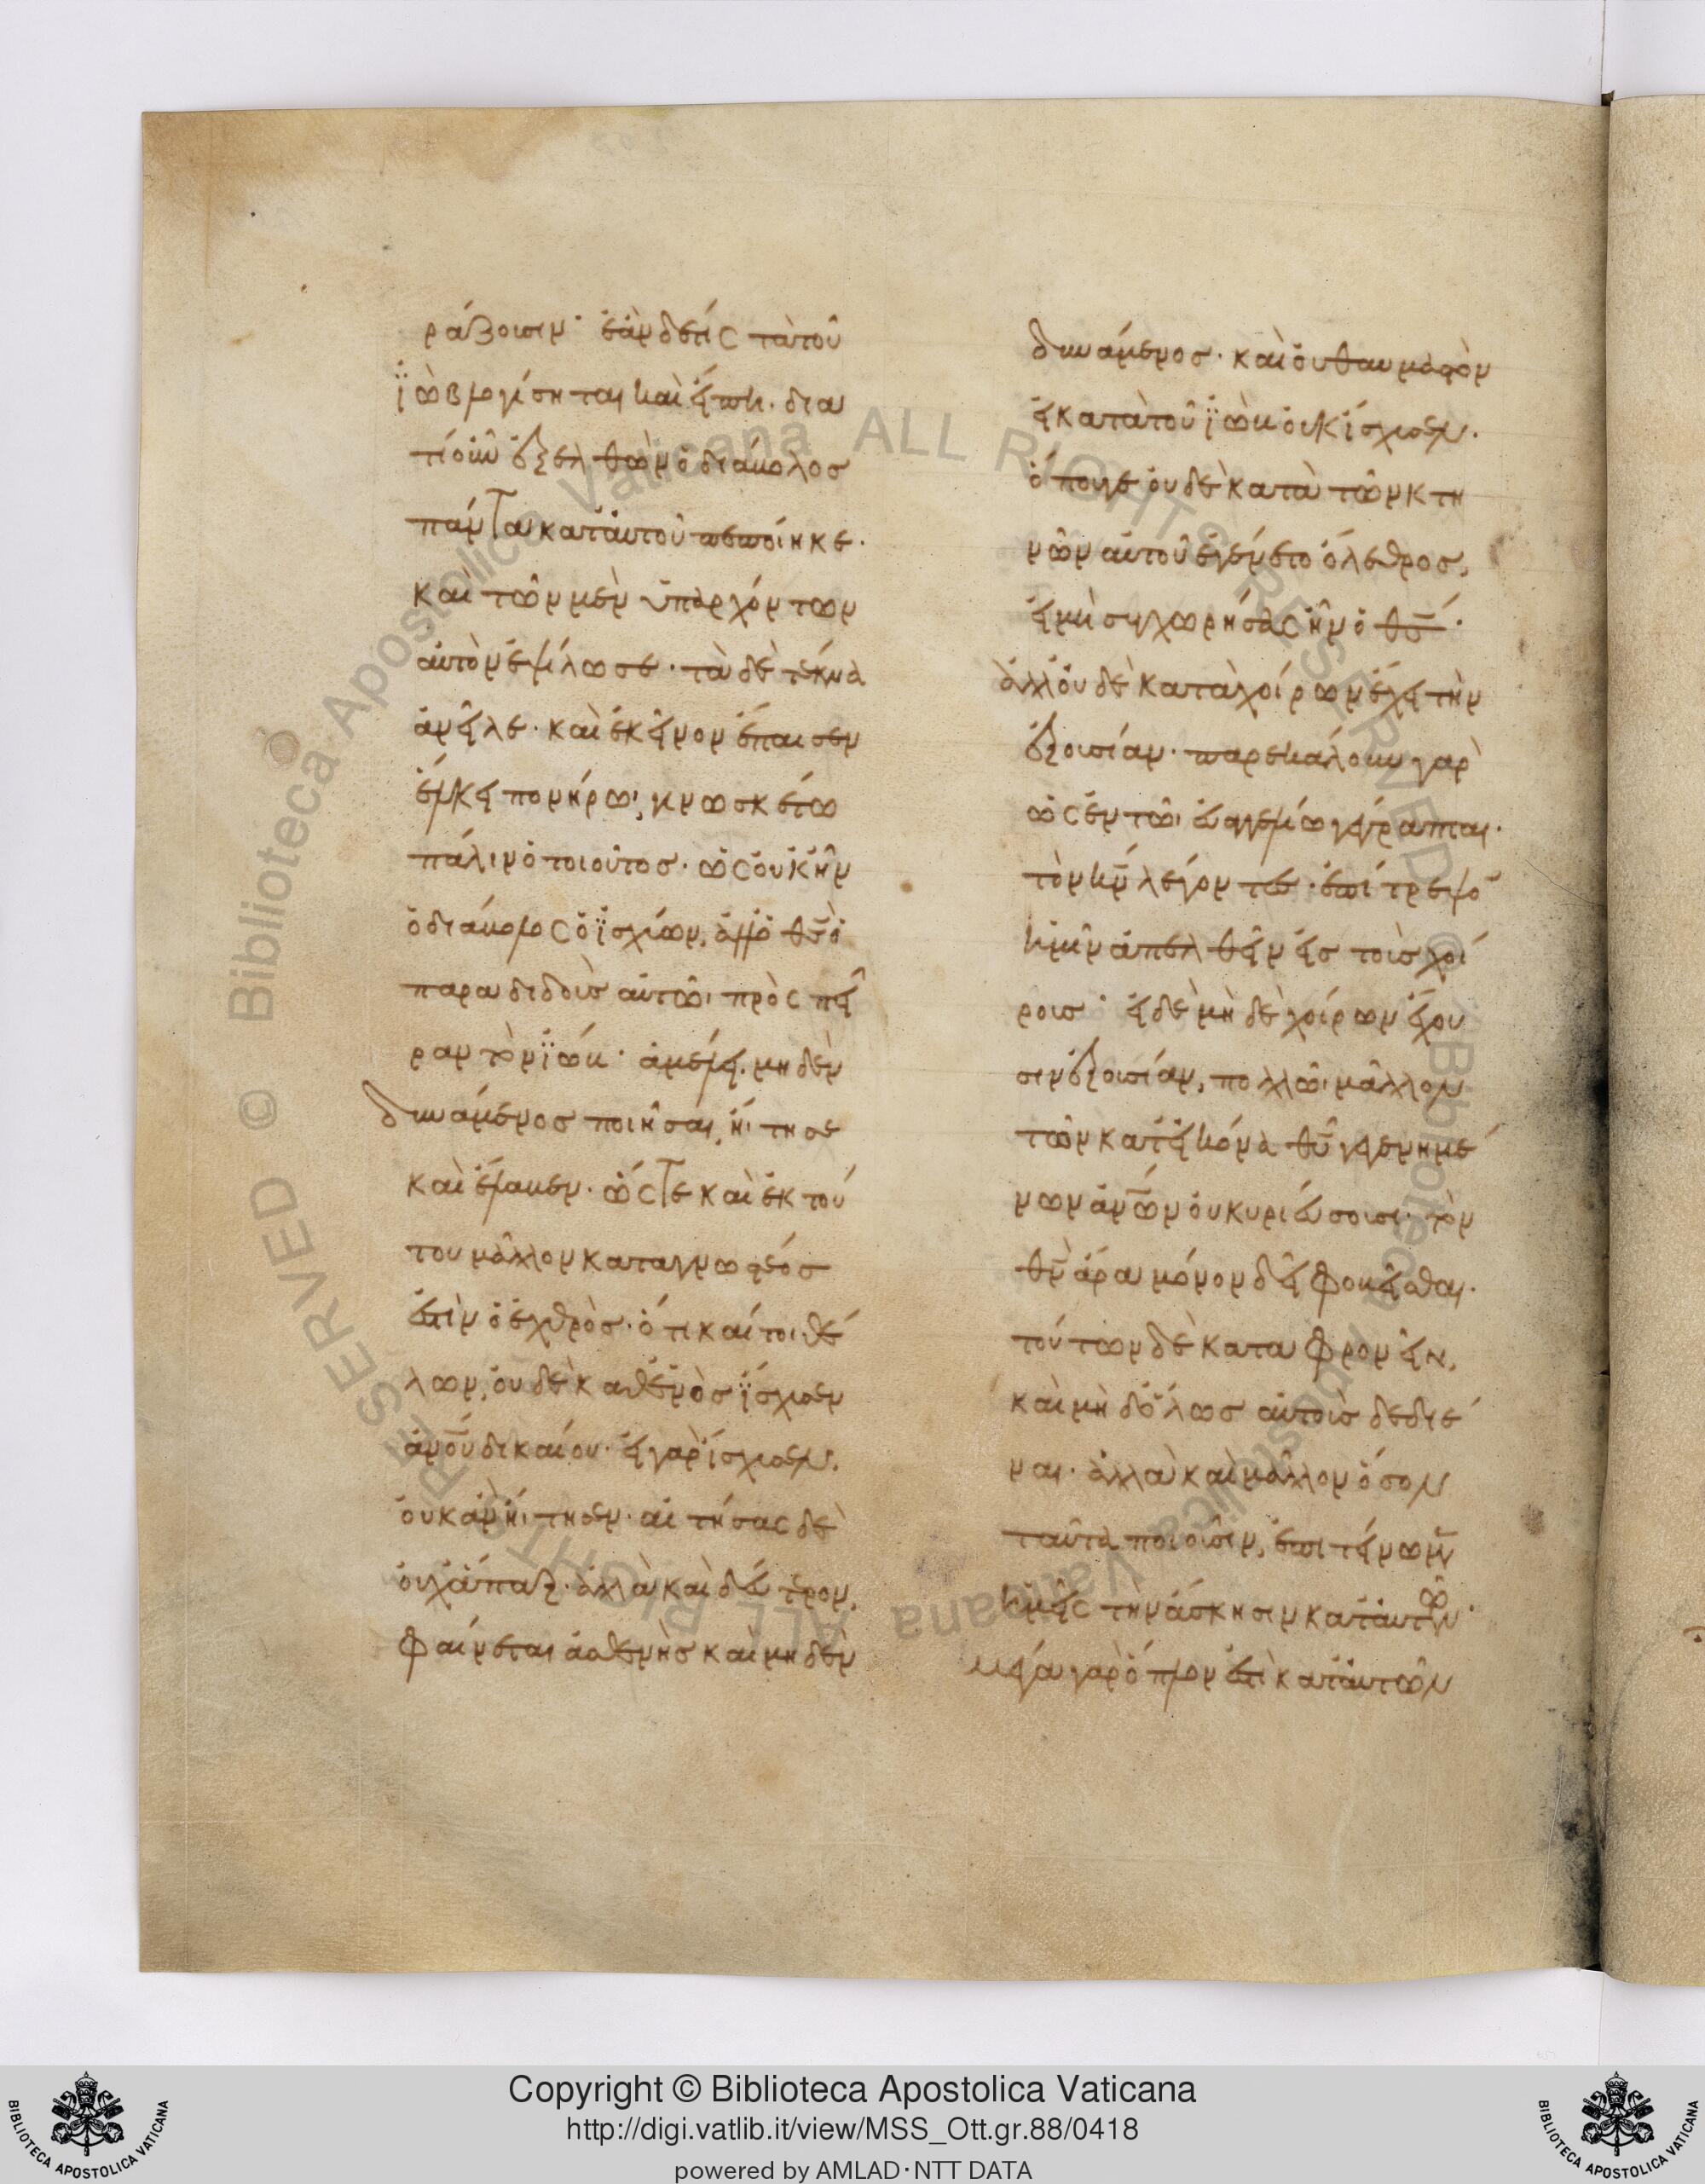 ράξουσιν· ἐὰν δέτις τὰ τοῦ
ϊὼβ λογίσηται καὶ εἴπη· δια
τί οὖν ἐξελθὼν ὁ διάβολος
πάντα κατ' αὐτοῦ πεποίηκε·
καὶ τῶν μὲν ὑπαρχόντων
αὐτὸν ἐψίλωσε· τὰ δὲ τέκνα
ἀνεῖλε· καὶ ἐκεῖνον ἔπαισεν
ἕλκει πονήρω, γινωσκέτω
πάλιν ὁ τοιοῦτος· ὡς οὐκ ἦν
ὁ διάβολος ὁ ϊσχύων, ἀλλ' ὁ θς ὁ
παραδιδοὺς αὐτῶι πρὸς πεῖ
ραν τὸν ϊώβ· ἀμέλει μηδὲν
δυνάμενος ποιῆσαι, ἤιτησε
καὶ ἔλαβεν· ὥστε καὶ ἐκ τού
του μᾶλλον καταγνωστέος
ἐστὶν ὁ ἐχθρὸς· ὅτι καίτοι θέ
λων, οὐδὲ καθ' ἑνὸς ΐσχυσεν
ἀνου δικαίου· εἰ γὰρ ΐσχυσεν,
οὐκ ἂν ἤιτησεν· αἰτήσας δὲ
οὐχ ἅπαξ· ἀλλὰ καὶ δεύτερον,
φαίνεται ἀσθενὴς καὶ μηδὲν
δυνάμενος· καὶ οὐ θαυμαστὸν
εἰ κατὰ τοῦ ϊὼβ οὐκ ΐσχυσεν·
ὅπουγε οὐδὲ κατὰ τῶν κτη
νῶν αὐτοῦ ἐγένετο ὄλεθρος,
εἰ μὴ συγχωρήσας ἦν ὁ θς·
ἀλλ' οὐδὲ κατὰ χοίρων ἔχει τὴν
ἐξουσίαν· παρεκάλουν γὰρ
ὡς ἐν τῶι εὐαγγελίω γέγραπται·
τὸν κν λέγοντες· ἐπίτρεψο
ἡμῖν ἀπελθεῖν εἰς τοὺς χοί
ρους· εἰ δὲ μὴ δὲ χοίρων ἔχου
σιν ἐξουσίαν, πολλῶι μᾶλλον
τῶν κατ' εἰκόνα θυ γεγενημέ
νων ἀνων οὐ κυριεύσουσι· τὸν
θν ἄρα μόνον δεῖ φοβεῖσθαι·
τούτων δὲ καταφρονεῖν,
καὶ μὴ δ' ὅλως αὐτοὺς δεδιέ
ναι· ἀλλὰ καὶ μᾶλλον ὅσον
ταῦτα ποιοῦσιν, ἐπιτείνωμεν
ἡμεῖς τὴν ἄσκησιν κατ' αὐτῶν·
μέγα γὰρ ὅπλον ἐστὶ κατ' αὐτῶν
© Biblioteca Apostolica Vaticana ALL RIGHTS RESERVED © Biblioteca Apostolica Vaticana ALL RIGHTS RESERVED
Copyright © Biblioteca Apostolica Vaticana
http://digi.vatlib.it/view/MSS_Ott.gr.88/0418
powered by AMLAD·NTT DATA
BIBLIOTECA APOSTOLICA VATICANA
BIBLIOTECA APOSTOLICA VATICANA